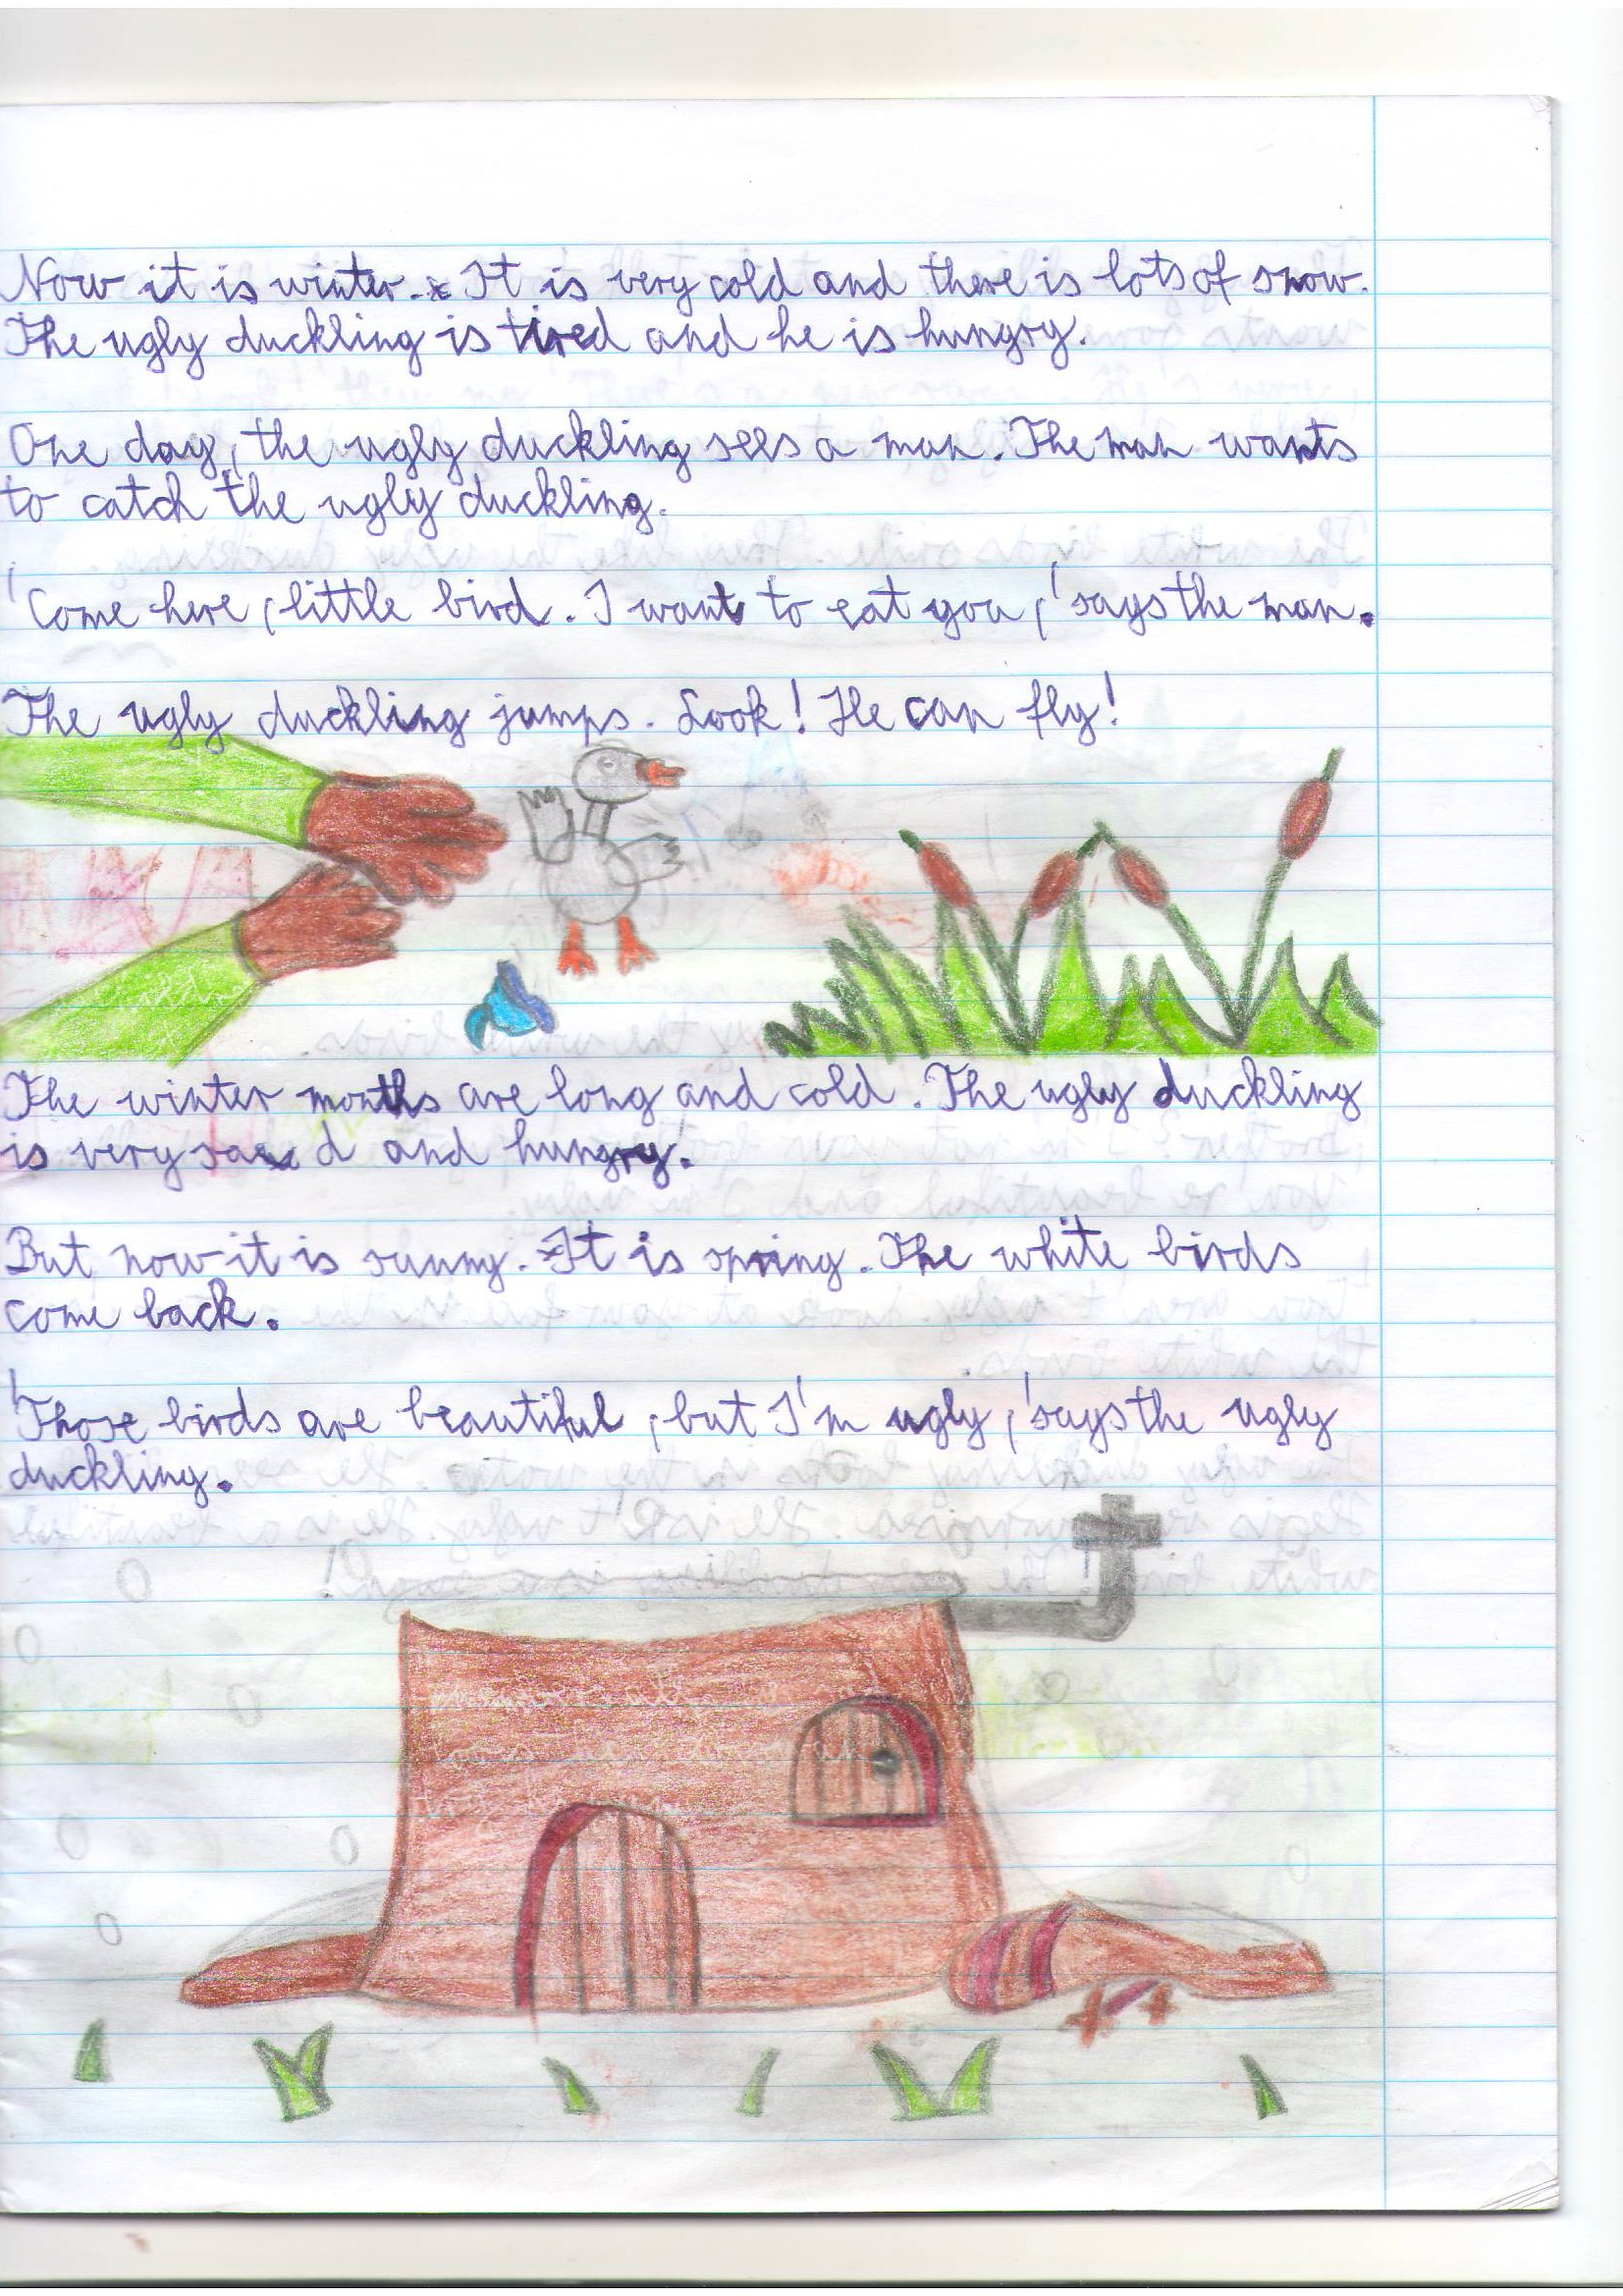 Now it is winter. It is very cold and there is lots of snow.
The ugly duckling is tired and he is hungry.
One day, the ugly duckling sees a man. The man wants
to catch the ugly duckling.
'Come here, little bird. I want to eat you,' says the man.
The ugly duckling jumps. Look! He can fly!
The winter months are long and cold. The ugly duckling
is very sad and hungry.
But now it is sunny. It is spring. The white birds
come back.
'Those birds are beautiful, but I'm ugly,' says the ugly
duckling.